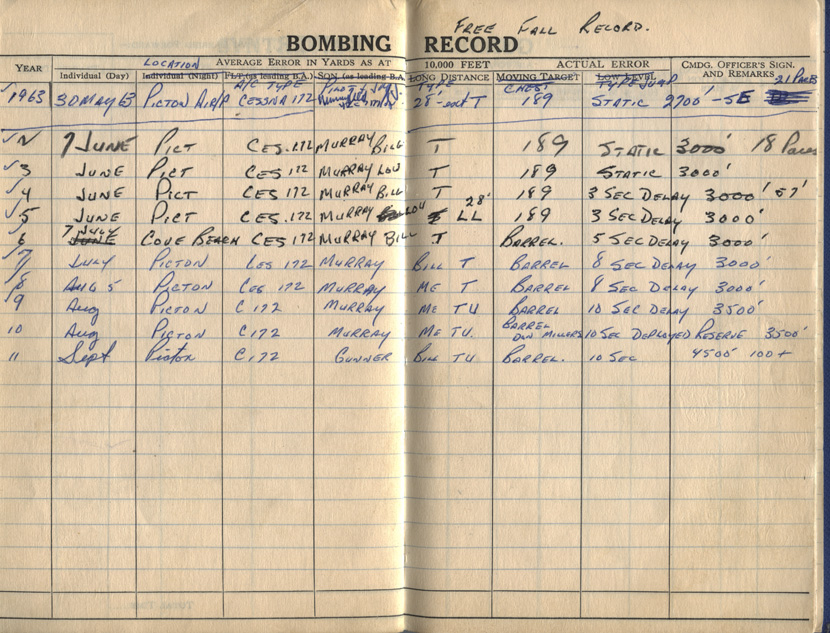 FREE FALL RECORD.
BOMBING RECORD
LOCATION AVERAGE ERROR IN YARDS AS AT 10,000 FEET ACTUAL ERROR CMDG. OFFICER'S SIGN. AND REMARKS
YEAR Individual (Day) Individual (Night) FLT. (as leading B.A.) SQN. (as leading B.A. LONG DISTANCE MOVING TARGET LOW LEVEL
A/C TYPE TYPE CHEST TYPE JUMP 21 Paces
1963 30 MAY 63 PICTON AIR/P CESSNA 172 28'-ext T 189 STATIC 2700'-SE
2 7 JUNE PICT CES.172 MURRAY BILL T 189 STATIC 3000' 18 Paces
3 JUNE PICT CES 172 MURRAY LOU T 189 STATIC 3000'
4 JUNE PICT CES 172 MURRAY BILL T 189 3 SEC DELAY 3000' 57'
5 JUNE PICT CES 172 MURRAY LOU 28' LL 189 3 SEC DELAY 3000'
6 7 JULY JUNE COVE BEACH CES 172 MURRAY BILL T BARREL. 5 SEC DELAY 3000'
7 JULY PICTON CES 172 MURRAY BILL T BARREL 8 SEC DELAY 3000'
8 AUG 5 PICTON CES 172 MURRAY ME T BARREL 8 SEC DELAY 3000'
9 Aug PICTON C 172 MURRAY ME TU BARREL 10 SEC DELAY 3500'
10 Aug PICTON C172 MURRAY ME TU. BARREL DON MILLERS 10 SEC DEPLOYED RESERVE 3500'
11 Sept Picton C172 GUNNER BILL TU BARREL. 10 SEC 4500' 100+